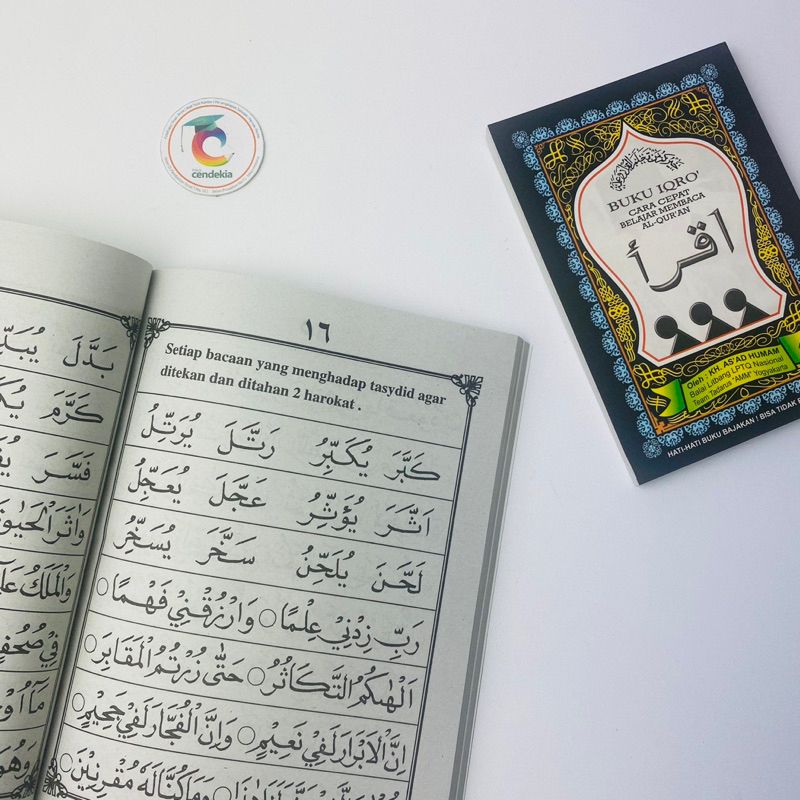 cendekia
BUKU IQRO'
CARA CEPAT
BELAJAR MEMBACA
AL-QUR'AN
اقرأ
Oleh : KH. AS'AD HUMAM
Balai Litbang LPTQ Nasional
Team Tadarus "AMM" Yogyakarta
HATI-HATI BUKU BAJAKAN ! BISA TIDAK
١٦
Setiap bacaan yang menghadap tasydid agar
ditekan dan ditahan 2 harokat .
كَبَّرَ يُكَبِّرُ رَتَّلَ يُرَتِّلُ
اَثَّرَ يُؤَثِّرُ عَجَّلَ يُعَجِّلُ
لَحَّنَ يُلَحِّنُ سَخَّرَ يُسَخِّرُ
رَبِّ زِدْنِيْ عِلْمًا ○ وَارْزُقْنِيْ فَهْمًا ○
اَلْهٰىكُمُ التَّكَاثُرُ ○ حَتّٰى زُرْتُمُ الْمَقَابِرَ ○
اِنَّ الْاَبْرَارَ لَفِيْ نَعِيْمٍ ○ وَاِنَّ الْفُجَّارَ لَفِيْ جَحِيْمٍ ○
وَمَا كُنَّا لَهٗ مُقْرِنِيْنَ ○
بَدَّلَ
كَرَّمَ
فَسَّرَ